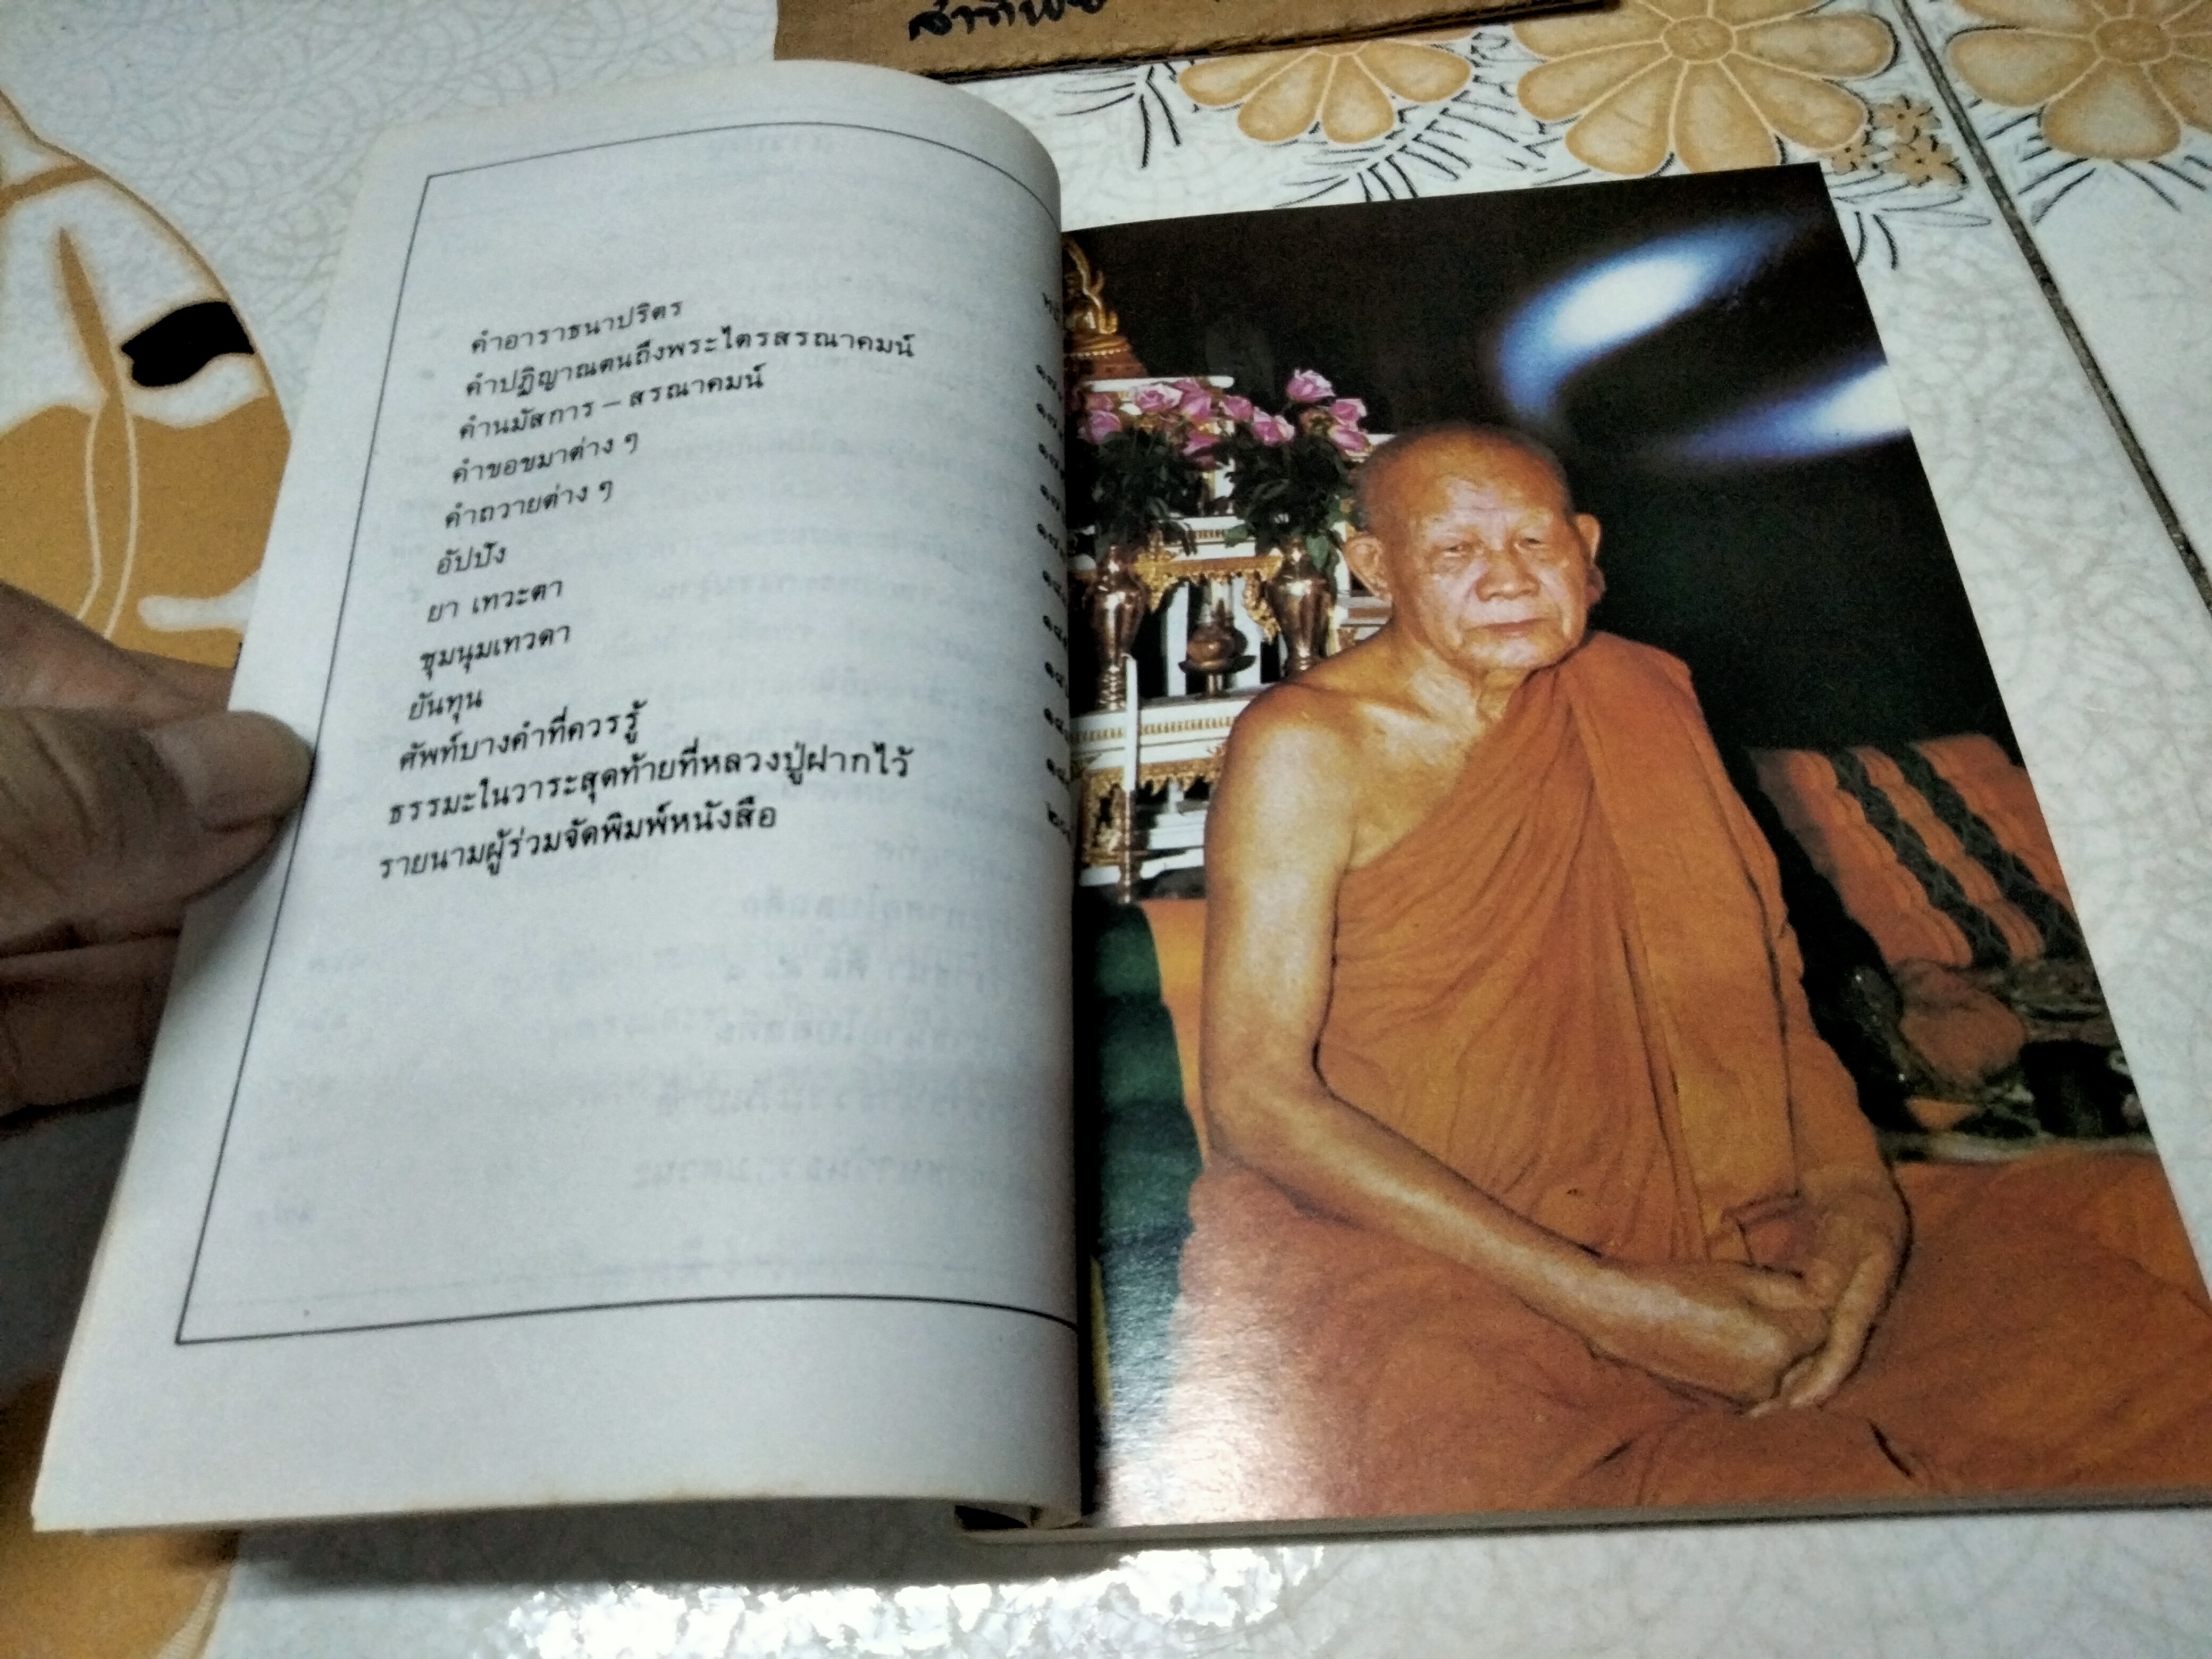 คำอาราธนาปริตร
คำปฏิญาณตนถึงพระไตรสรณาคมน์
คำนมัสการ – สรณาคมน์
คำขอขมาต่าง ๆ
คำถวายต่าง ๆ
อัปปัง
ยา เทวะตา
ชุมนุมเทวดา
ยันทุน
ศัพท์บางคำที่ควรรู้
ธรรมะในวาระสุดท้ายที่หลวงปู่ฝากไว้
รายนามผู้ร่วมจัดพิมพ์หนังสือ